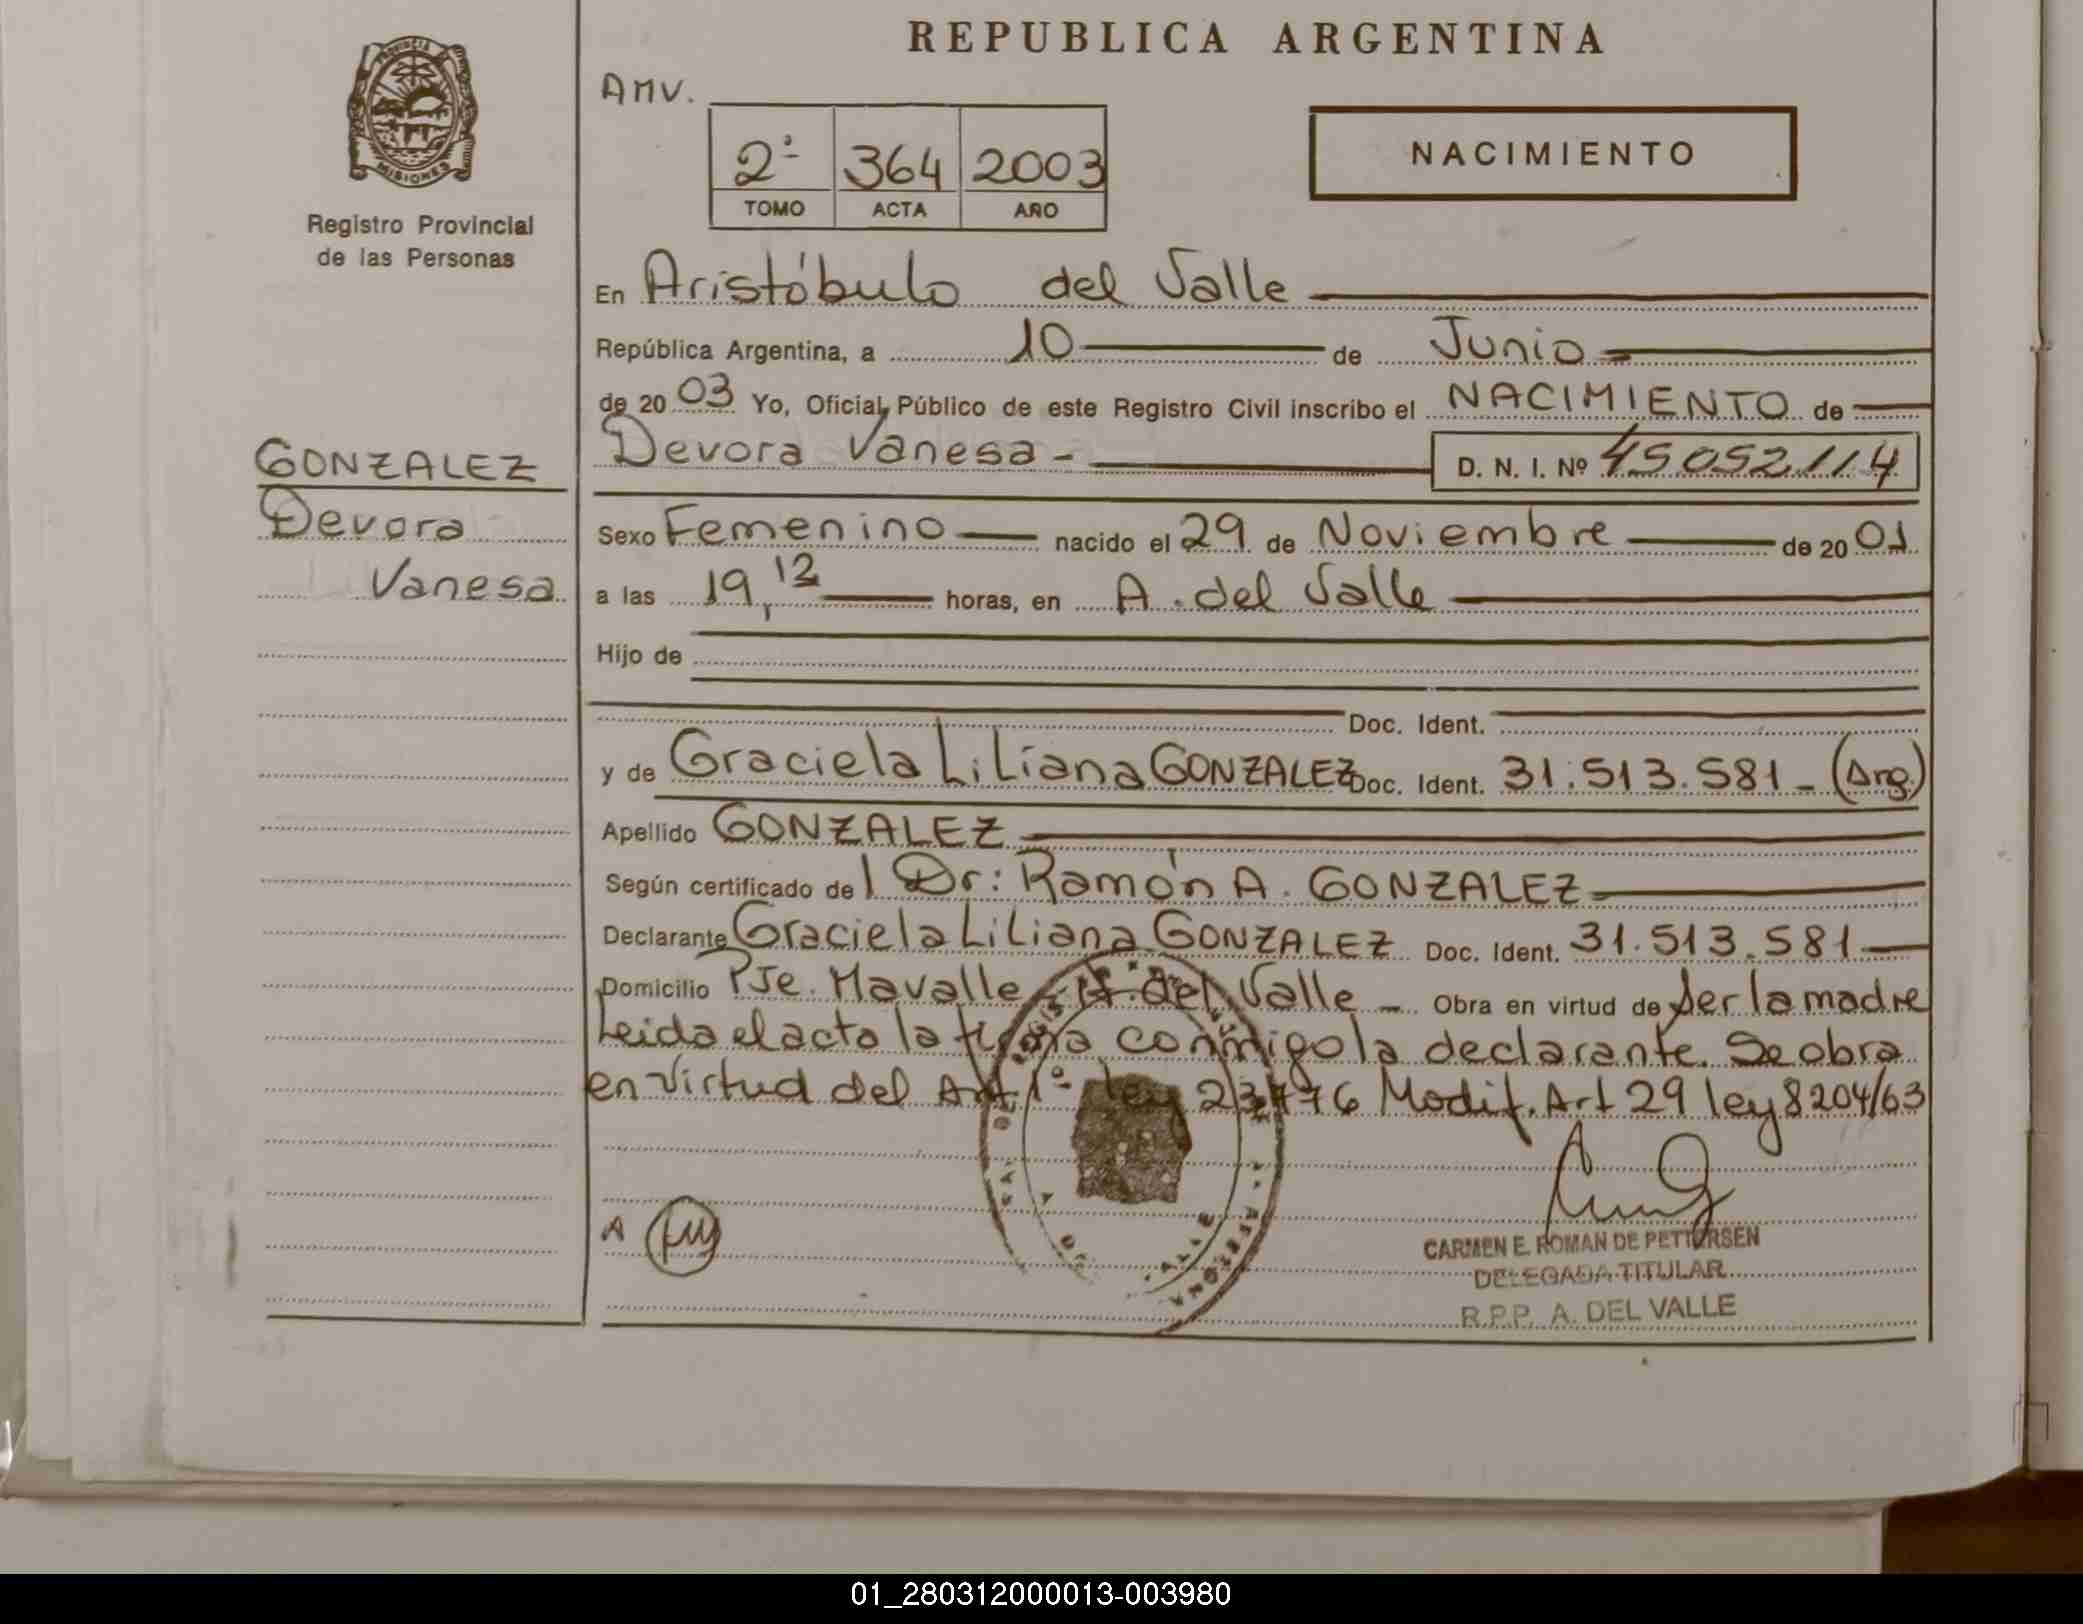 REPUBLICA ARGENTINA
PROVINCIA
MISIONES
Registro Provincial
de las Personas
AMV.
2º 364 2003
TOMO ACTA AÑO
NACIMIENTO
En Aristóbulo del Valle
República Argentina, a 10 de Junio
de 2003 Yo, Oficial Público de este Registro Civil inscribo el NACIMIENTO de
Devora Vanesa - D. N. I. Nº 45052114
GONZALEZ
Devora
Vanesa
Sexo Femenino nacido el 29 de Noviembre de 2001
a las 19,12 horas, en A. del Valle
Hijo de
Doc. Ident.
y de Graciela Liliana GONZALEZ Doc. Ident. 31.513.581 - (Arg.)
Apellido GONZALEZ
Según certificado del Dr: Ramón A. GONZALEZ
Declarante Graciela Liliana GONZALEZ Doc. Ident. 31.513.581
Domicilio Pje. Mavalle - A. del Valle - Obra en virtud de ser la madre
Leida el acta la firma conmigo la declarante. Se obra
en virtud del Art 1º ley 23776 Modif. Art 29 ley 8204/63
A
CARMEN E. ROMAN DE PETTERSEN
DELEGADA TITULAR
R.P.P. A. DEL VALLE
01_280312000013-003980